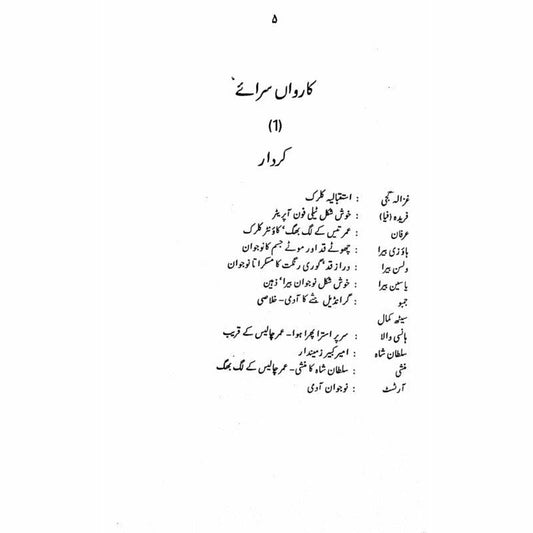 ۵
کارواں سرائے
(1)
کردار
غزالہ گجی : استقبالیہ کلرک
فریدہ (فیا) : خوش شکل ٹیلی فون آپریٹر
عرفان : عمر تیس کے لگ بھگ' کاؤنٹر کلرک
ہاؤزی بیرا : چھوٹے قد اور موٹے جسم کا نوجوان
ولسن بیرا : دراز قد' گوری رنگت کا مسکراتا نوجوان
یاسین بیرا : خوش شکل نوجوان بیرا' ذہین
جمبو : گرانڈیل جثے کا آدمی- خلاصی
سیٹھ کمال
ہانسی والا : سر پر استرا پھرا ہوا- عمر چالیس کے قریب
سلطان شاہ : امیر کبیر زمیندار
منشی : سلطان شاہ کا منشی- عمر چالیس کے لگ بھگ
آرٹسٹ : نوجوان آدمی